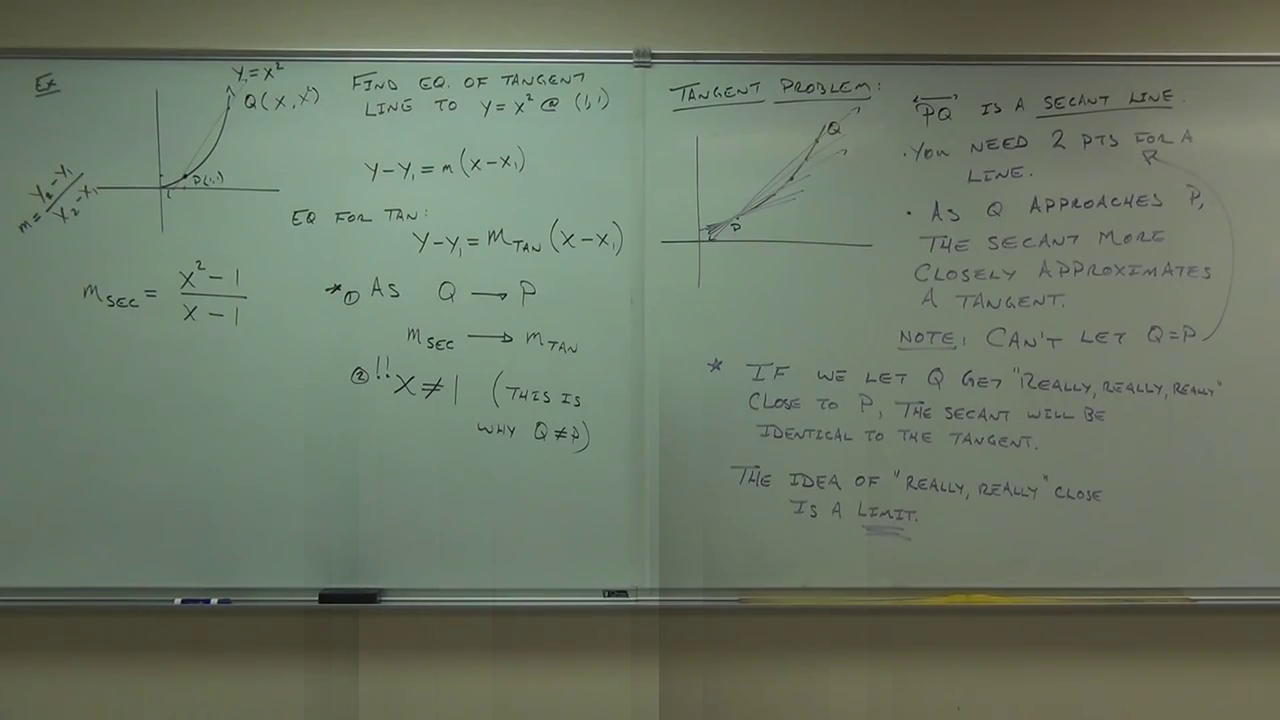 Ex
y₁ = x²
Q(x, x²)
P(1,1)
1
m = y₂ - y₁ / x₂ - x₁
m SEC = x² - 1 / x - 1
FIND EQ. OF TANGENT
LINE TO y = x² @ (1,1)
y - y₁ = m(x - x₁)
EQ FOR TAN:
y - y₁ = m TAN (x - x₁)
* ① AS Q → P
m SEC → m TAN
② !! x ≠ 1 (THIS IS
WHY Q ≠ P)
TANGENT PROBLEM:
Q
P
PQ IS A SECANT LINE.
· YOU NEED 2 PTS FOR A
LINE.
· AS Q APPROACHES P,
THE SECANT MORE
CLOSELY APPROXIMATES
A TANGENT.
NOTE: CAN'T LET Q = P
* IF WE LET Q GET "REALLY, REALLY, REALLY"
CLOSE TO P, THE SECANT WILL BE
IDENTICAL TO THE TANGENT.
THE IDEA OF "REALLY, REALLY" CLOSE
IS A LIMIT.